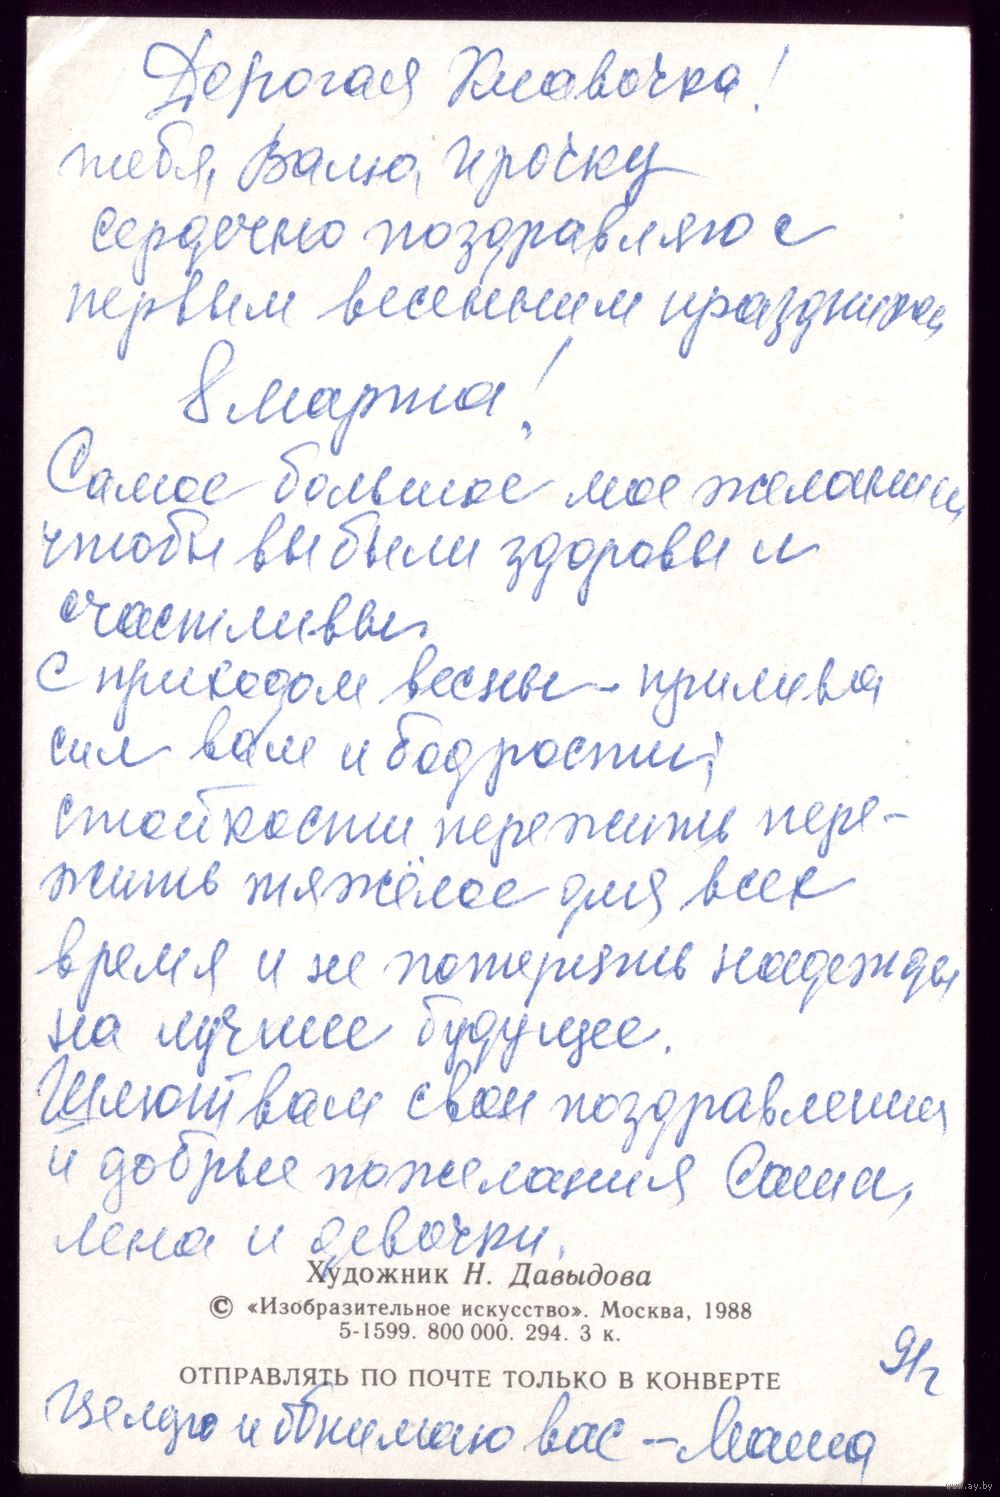 Дорогая Клавочка!
тебя, Валю, Ирочку
сердечно поздравляю с
первым весенним праздником
8 марта!
Самое большое мое желание,
чтобы вы были здоровы и
счастливы.
С приходом весны – прилива
сил вам и бодрости,
стойкости пережить пере-
жить тяжёлое для всех
время и не потерять надежды
на лучшее будущее.
Шлют вам свои поздравления
и добрые пожелания Саша,
Лена и девочки.
Художник Н. Давыдова
© «Изобразительное искусство». Москва, 1988
5-1599. 800 000. 294. 3 к.
91г
ОТПРАВЛЯТЬ ПО ПОЧТЕ ТОЛЬКО В КОНВЕРТЕ
Целую и обнимаю вас – Маша
www.ay.by